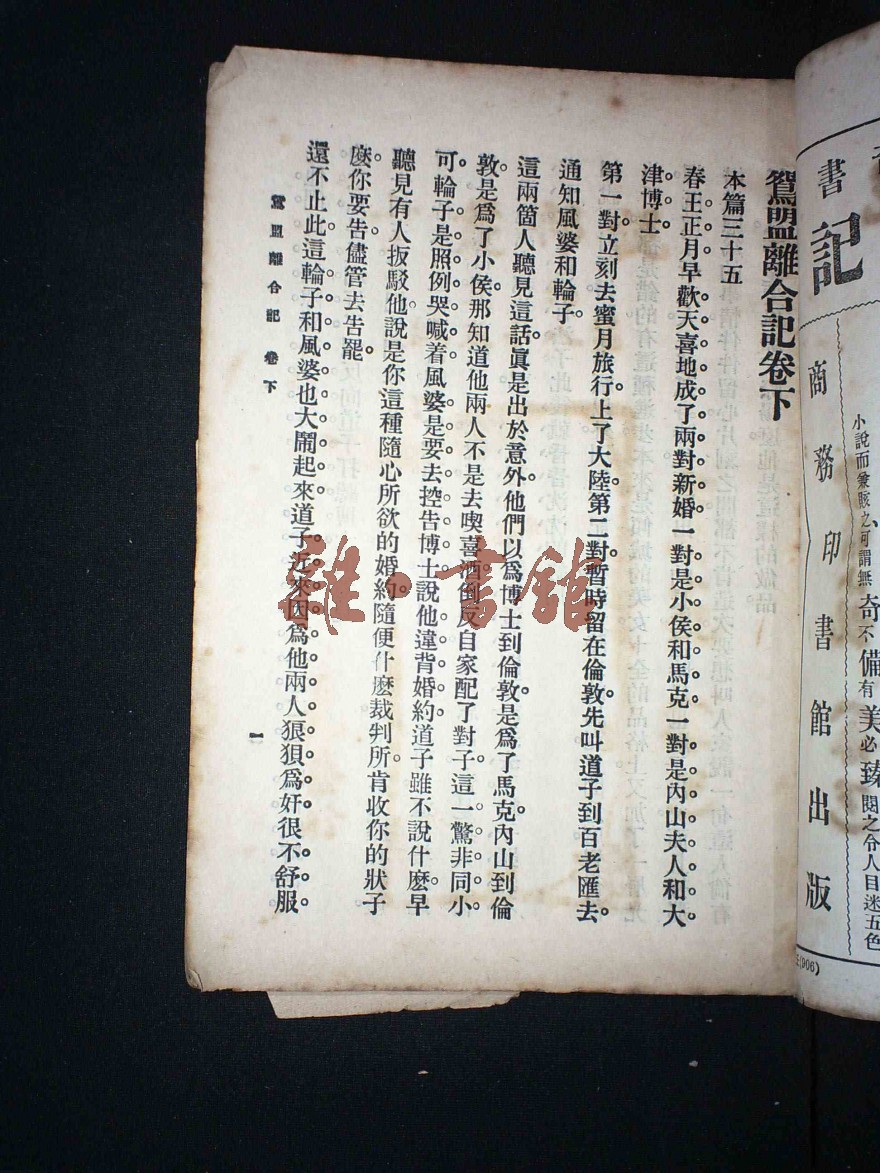 鴛盟離合記卷下
本篇三十五
春王正月早歡天喜地成了兩對新婚一對是小侯和馬克一對是內山夫人和大
津博士。
第一對立刻去蜜月旅行上了大陸。第二對暫時留在倫敦先叫道子到百老匯去。
通知風婆和輪子。
這兩箇人聽見這話眞是出於意外他們以爲博士到倫敦是爲了馬克內山到倫
敦是爲了小侯那知道他兩人不是去喫喜酒倒反自家配了對子這一驚非同小
可。輪子是照例哭喊着風婆是要去控告博士說他違背婚約道子雖不說什麼早
聽見有人扳駁他說是你這種隨心所欲的婚約隨便什麼裁判所肯收你的狀子
麼。你要告儘管去告罷。
還不止此這輪子和風婆也大鬧起來。道子近來因爲他兩人狼狽爲奸很不舒服
鴛盟離合記 卷下
一
雜·書館
書
記
商務印書館出版
小說而兼賅之可謂無
奇不備有美必臻閱之令人目迷五色
(906)